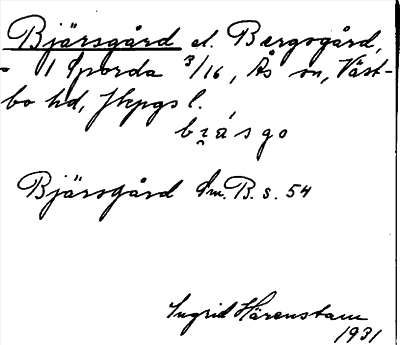 Bjärsgård el. Bergsgård,
- 1 Sporda 3/16, Ås sn, Väst-
bo hd, Jkpgs l.
bi̯ásgo
Bjärsgård Sm. B. s. 54
Ingrid Härenstam
1931